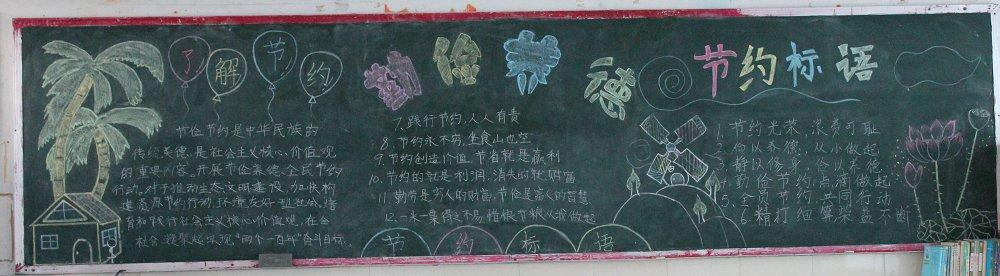 了解节约
节俭节约是中华民族的
传统美德,是社会主义核心价值观
的重要内容。开展节俭养德全民节约
行动,对于推动生态文明建设,加快构
建资源节约行动,环境友好型社会,培
育和践行社会主义核心价值观,在全
社会凝聚起实现,"两个一百年"奋斗目标.
勤俭养德
7、践行节约,人人有责
8、节约永不穷,坐食山也空
9、节约创造价值,节省就是赢利
10、节约的就是利润,消失的就是财富
11、勤劳是穷人的财富,节俭是富人的智慧
12、一米一粟得之不易,惜粮节粮从我做起
节约标语
节约标语
1、节约光荣,浪费可耻
2、俭以养德,从小做起
3、静以修身,俭以养德
4、勤俭节约,点滴做起
5、全员节约,共同行动
6、精打细算,柴盖不断